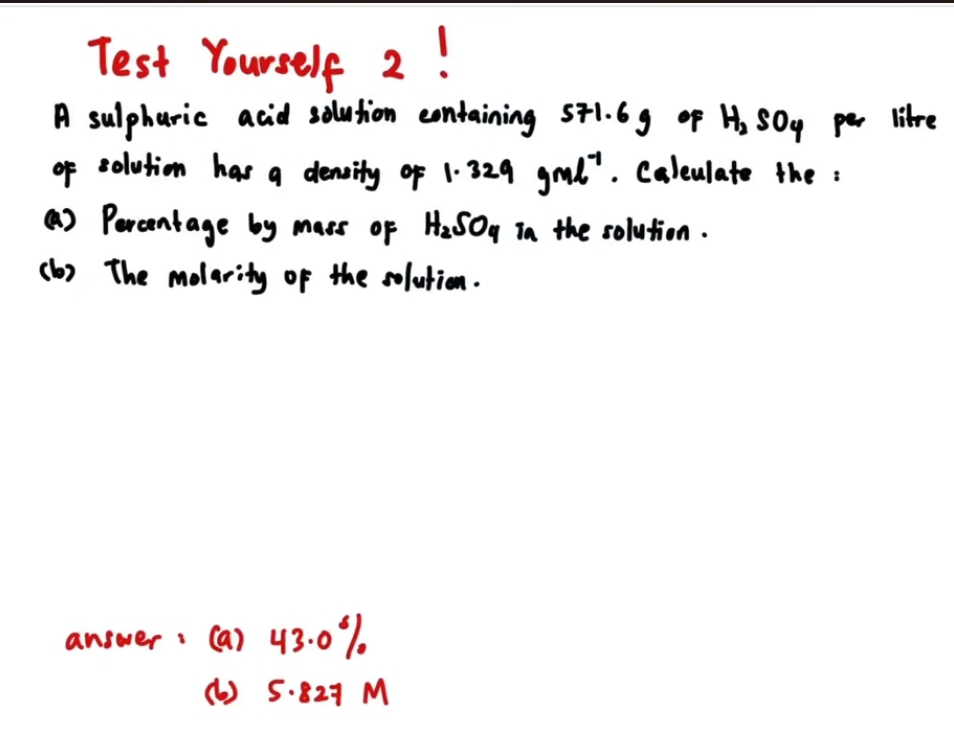 Test Yourself 2 !
A sulphuric acid solution containing 571.6 g of H₂SO₄ per litre
of solution has a density of 1.329 gmL⁻¹. Calculate the :
(a) Percentage by mass of H₂SO₄ in the solution.
(b) The molarity of the solution.
answer : (a) 43.0%
(b) 5.827 M